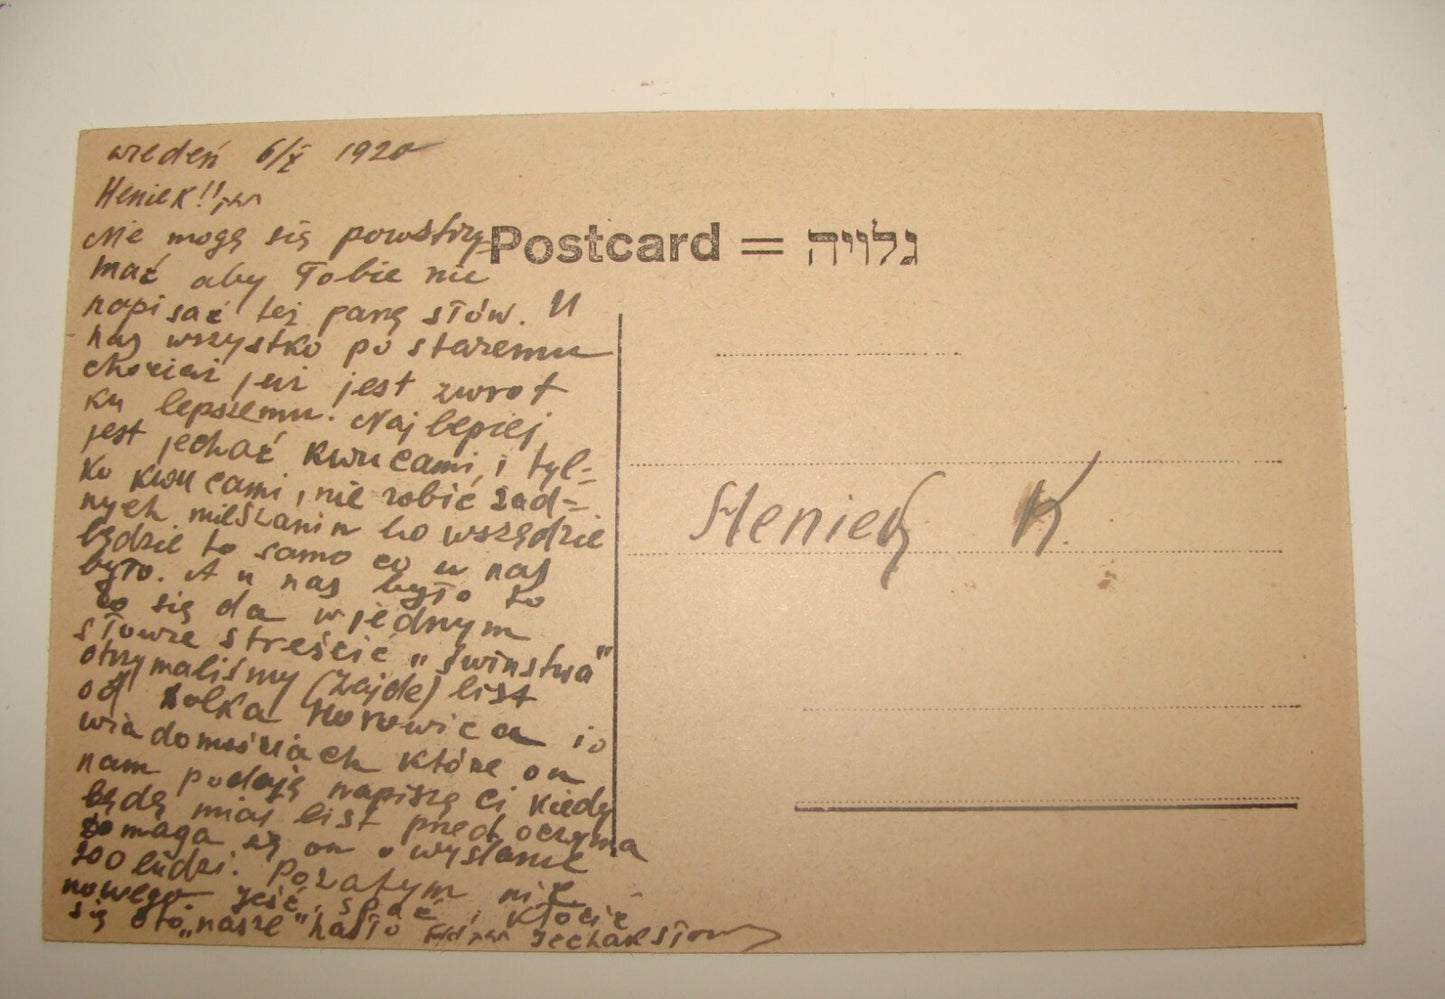 wiedeń 6/X 1920
Heniek!! חזק
Nie mogę się powstrzy-
mać aby Tobie nie
napisać też parę słów. U
nas wszystko po staremu
chociaż już jest zwrot
ku lepszemu. Najlepiej
jest jechać kwucami, i tyl=
ko kwucami, nie robić żad=
nych mieszanin bo wszędzie
będzie to samo co u nas
było. A u nas było to
co się da w jednym
słowie streścić „świństwa"
otrzymaliśmy (zajde) list
od Lolka Horowica i o
wiadomościach które on
nam podaję napiszę ci kiedy
będę miał list przed oczyma
domaga się on o wysłanie
200 ludzi. Pozatym nic
nowego. Jeść, spać i kłócić
się oto „nasze" hasło
Postcard = גלויה
Heniek K.